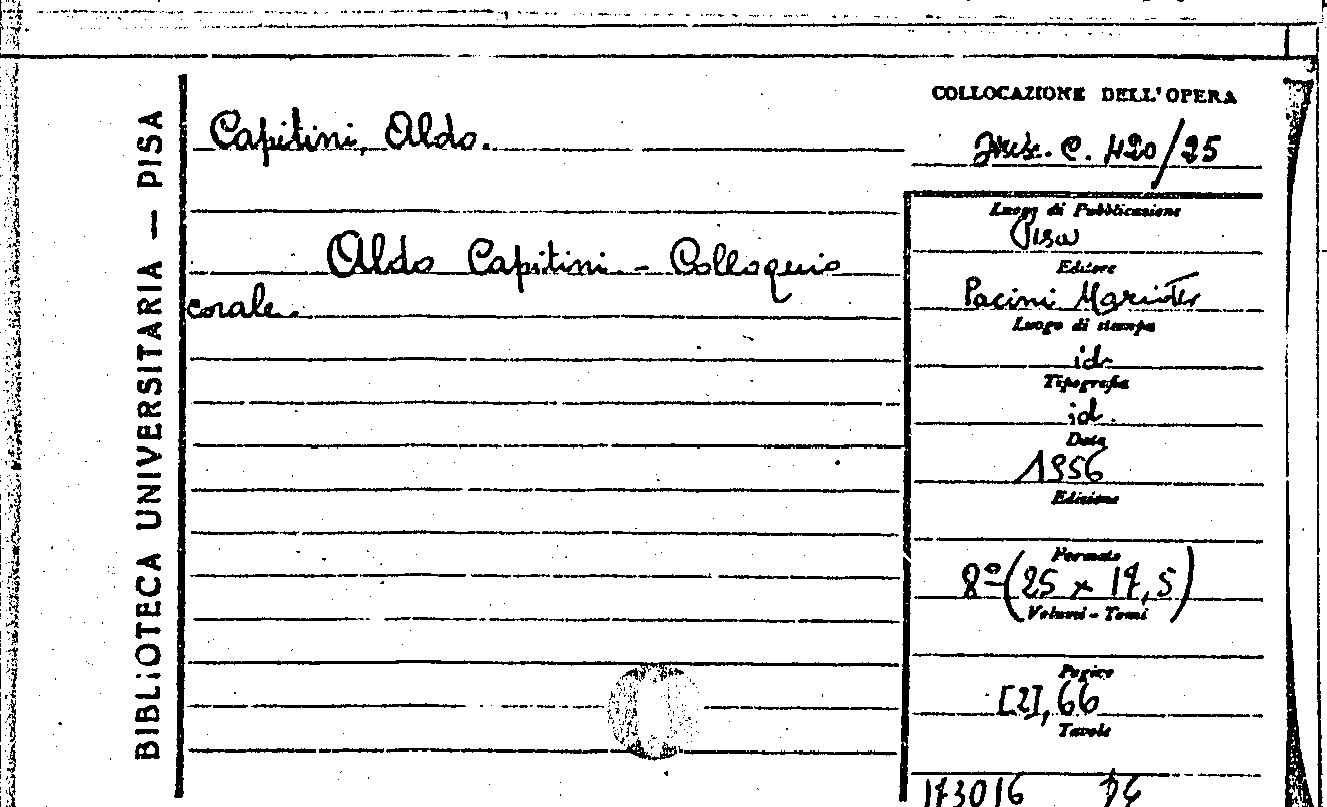 BIBLIOTECA UNIVERSITARIA — PISA
Capitini, Aldo.
Aldo Capitini - Colloquio
corale.
COLLOCAZIONE DELL'OPERA
Misc. C. 420/25
Luogo di Pubblicazione
Pisa
Editore
Pacini Mariotti
Luogo di stampa
id.
Tipografia
id.
Data
1956
Edizione
Formato
8º (25 x 17,5)
Volumi - Tomi
Pagine
[2], 66
Tavole
173016